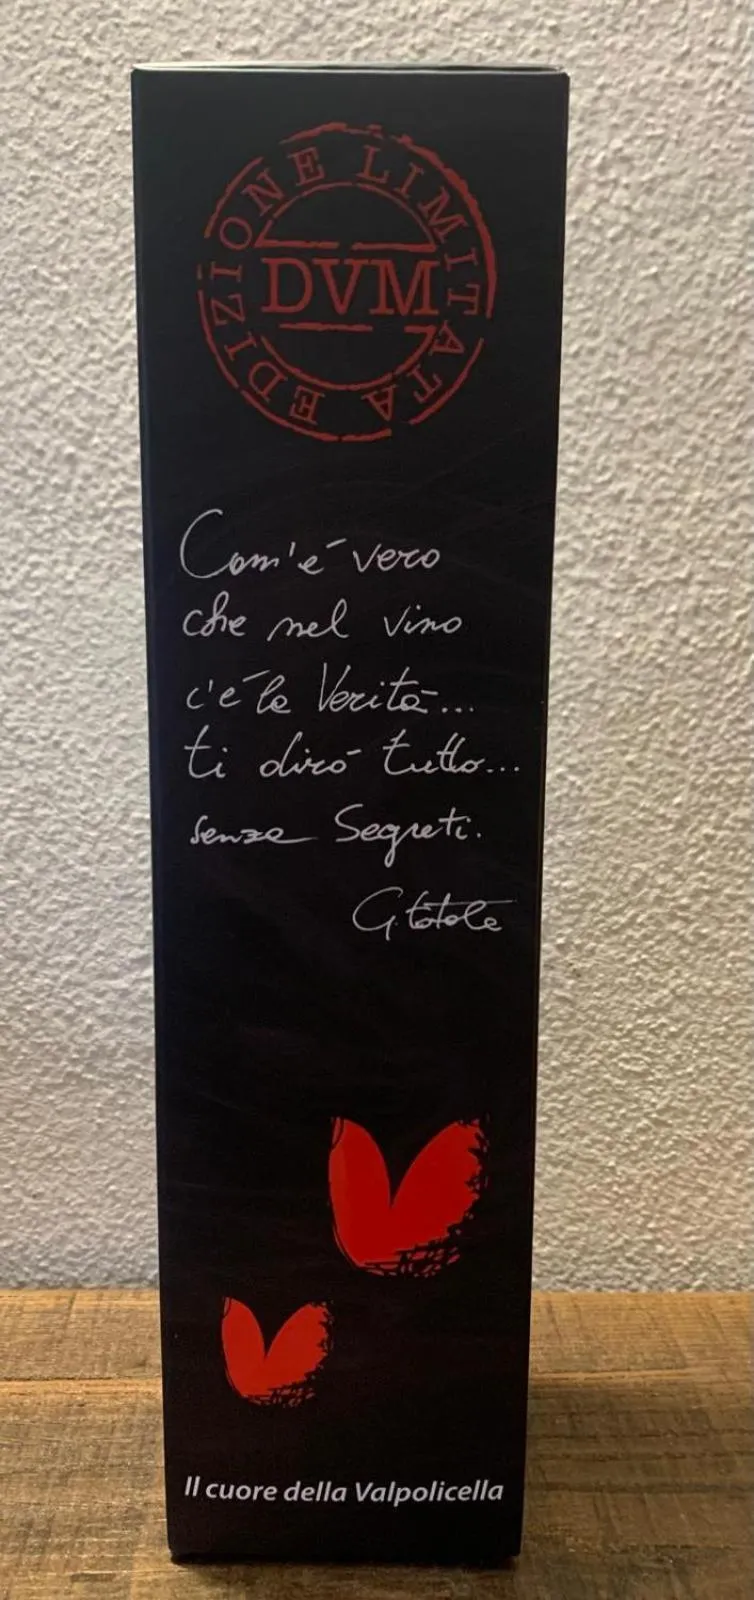 EDIZIONE LIMITATA
DVM
Com'è vero
che nel vino
c'è la Verità...
ti dirò tutto...
senza Segreti.
G. Totola
Il cuore della Valpolicella